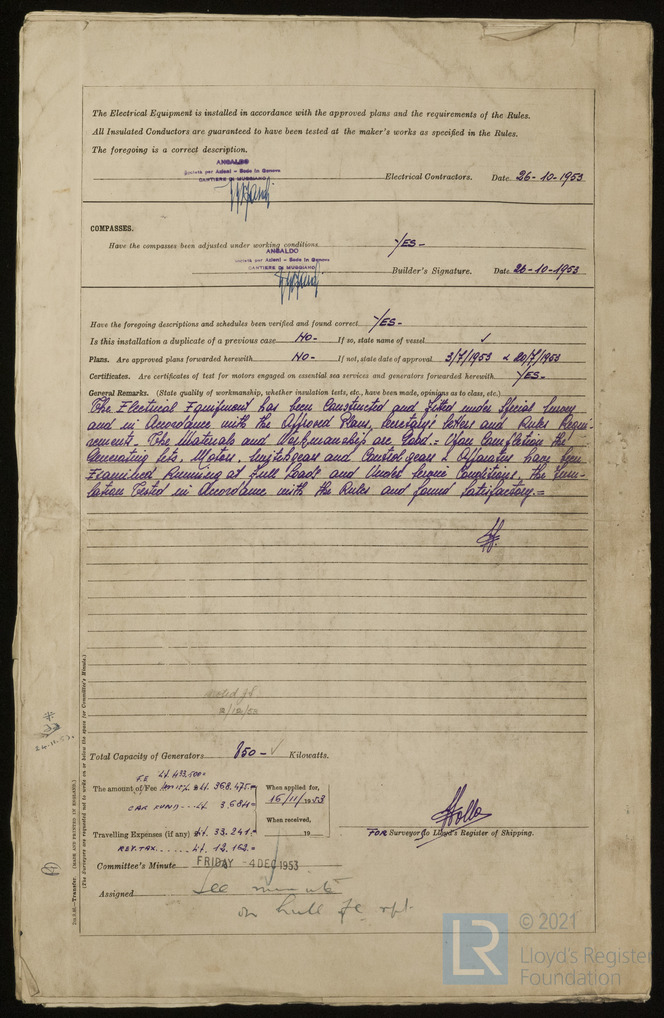 The Electrical Equipment is installed in accordance with the approved plans and the requirements of the Rules.
All Insulated Conductors are guaranteed to have been tested at the maker's works as specified in the Rules.
The foregoing is a correct description.
ANSALDO
Società per Azioni - Sede in Genova
CANTIERE DI MUGGIANO
Electrical Contractors. Date 26-10-1953
COMPASSES.
Have the compasses been adjusted under working conditions YES-
ANSALDO
Società per Azioni - Sede in Genova
CANTIERE DI MUGGIANO
Builder's Signature. Date 26-10-1953
Have the foregoing descriptions and schedules been verified and found correct YES-
Is this installation a duplicate of a previous case NO- If so, state name of vessel ✓
Plans. Are approved plans forwarded herewith NO- If not, state date of approval 3/7/1953 & 20/7/1953
Certificates. Are certificates of test for motors engaged on essential sea services and generators forwarded herewith YES-
General Remarks. (State quality of workmanship, whether insulation tests, etc., have been made, opinions as to class, etc.)
The Electrical Equipment has been Constructed and fitted under Special Survey
and in Accordance with the Approved Plans, Secretary's letters and Rules Requi-
rements. The Materials and Workmanship are Good.= Upon Completion the
Generating sets, Motors, Switchgears and Control gears & Apparatus have been
Examined Running at Full Loads and Under Service Conditions, the Insu-
lation Tested in Accordance with the Rules and found Satisfactory.=
noted
2/12/53
24.11.53
Total Capacity of Generators 850- ✓ Kilowatts.
F.E Lit. 433.500=
The amount of Fee Lit. 368.475= When applied for,
16/11/1953
CAR FUND... Lit. 3.684=
When received,
19
Travelling Expenses (if any) Lit. 33.241=
REV. TAX...... Lit. 12.162=
FOR Surveyor to Lloyd's Register of Shipping.
Committee's Minute FRIDAY - 4 DEC 1953
Assigned See minute
on hull FE rpt.
Transfer. (MADE AND PRINTED IN ENGLAND.)
(The Surveyors are requested not to write on or below the space for Committee's Minute.)
LR
© 2021
Lloyd's Register
Foundation